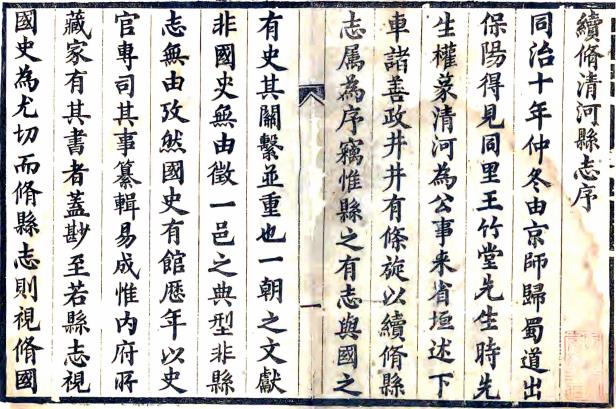 續脩清河縣志序
同治十年仲冬由京師歸蜀道出
保陽得見同里王竹堂先生時先
生權篆清河為公事来省垣述下
車諸善政井井有條旋以續脩縣
志属為序竊惟縣之有志與國之
有史其關繫並重也一朝之文獻
非國史無由徵一邑之典型非縣
志無由攷然國史有館歷年以史
官專司其事纂輯易成惟内府所
藏家有其書者蓋尠至若縣志視
國史為尤切而脩縣志則視脩國
一